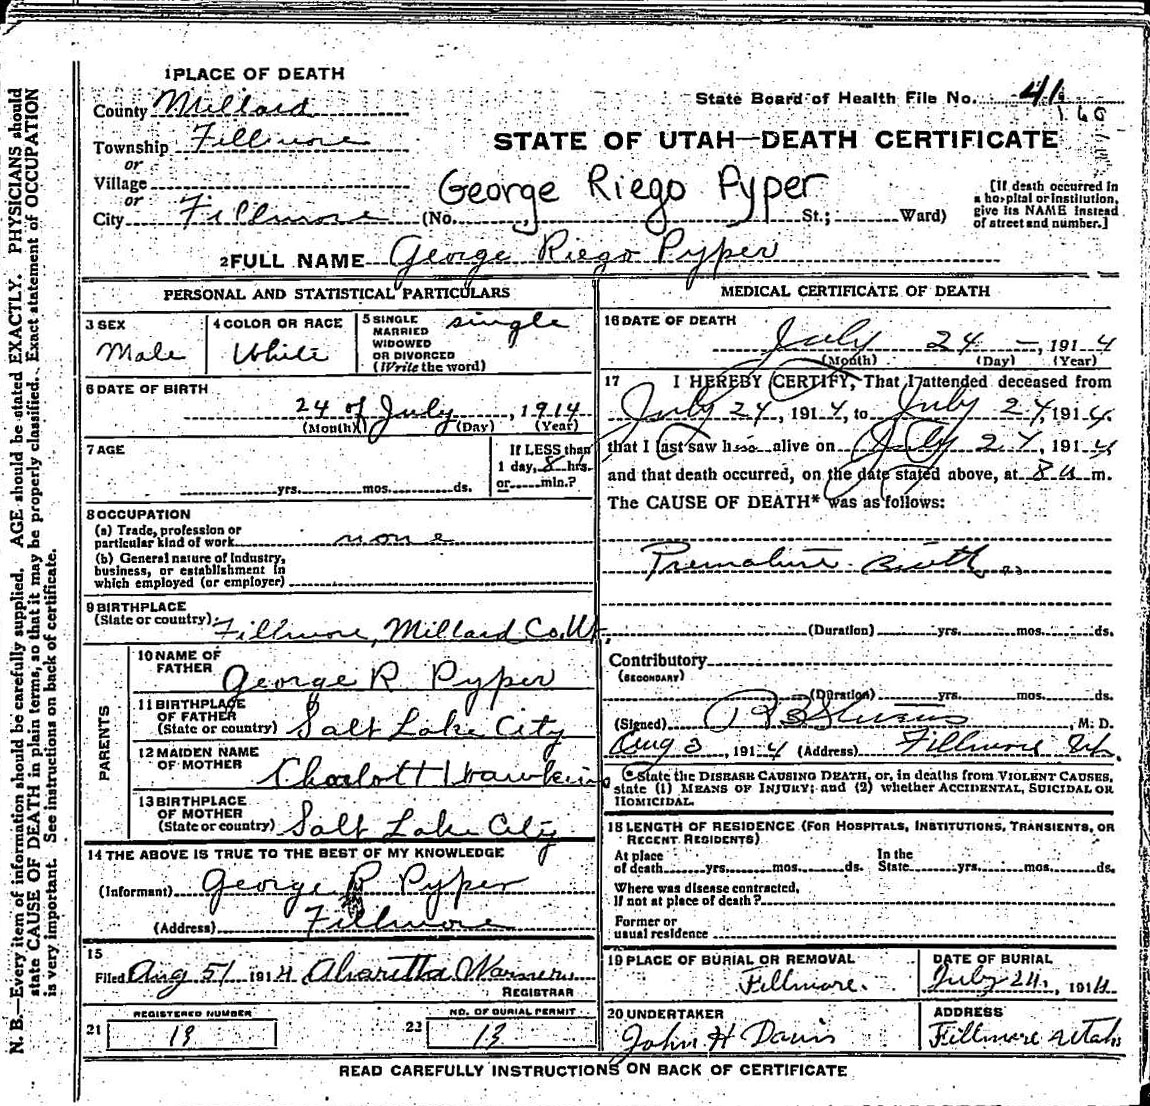 N. B.—Every item of information should be carefully supplied. AGE should be stated EXACTLY. PHYSICIANS should
state CAUSE OF DEATH in plain terms, so that it may be properly classified. Exact statement of OCCUPATION
is very important. See instructions on back of certificate.
1 PLACE OF DEATH
County Millard
State Board of Health File No. 41
160
Township Fillmore
STATE OF UTAH—DEATH CERTIFICATE
or
Village
or
George Riego Pyper
City Fillmore (No. St.; Ward)
[If death occurred in
a hospital or institution,
give its NAME instead
of street and number.]
2 FULL NAME George Riego Pyper
PERSONAL AND STATISTICAL PARTICULARS
3 SEX
Male
4 COLOR OR RACE
White
5 SINGLE
MARRIED
WIDOWED
OR DIVORCED
(Write the word)
single
6 DATE OF BIRTH
24 of July, 1914
(Month) (Day) (Year)
7 AGE
yrs. mos. ds.
If LESS than
1 day, 8 hrs.
or min.?
8 OCCUPATION
(a) Trade, profession or
particular kind of work none
(b) General nature of Industry,
business, or establishment in
which employed (or employer)
9 BIRTHPLACE
(State or country) Fillmore, Millard Co. Ut.
PARENTS
10 NAME OF
FATHER George R Pyper
11 BIRTHPLACE
OF FATHER
(State or country) Salt Lake City
12 MAIDEN NAME
OF MOTHER Charlott Hawkins
13 BIRTHPLACE
OF MOTHER
(State or country) Salt Lake City
14 THE ABOVE IS TRUE TO THE BEST OF MY KNOWLEDGE
(Informant) George R Pyper
(Address) Fillmore
15
Filed Aug 5/ 1914 Alvaretta Warner
REGISTRAR
21 REGISTERED NUMBER
13
22 NO. OF BURIAL PERMIT
13
MEDICAL CERTIFICATE OF DEATH
16 DATE OF DEATH
July 24 -, 1914
(Month) (Day) (Year)
17 I HEREBY CERTIFY, That I attended deceased from
July 24, 1914, to July 24, 1914.
that I last saw him alive on July 24, 1914
and that death occurred, on the date stated above, at 8 a m.
The CAUSE OF DEATH* was as follows:
Premature Birth.
(Duration) yrs. mos. ds.
Contributory
(SECONDARY)
(Duration) yrs. mos. ds.
(Signed) R B Stevens M. D.
Aug 3 1914 (Address) Fillmore Ut.
*State the DISEASE CAUSING DEATH, or, in deaths from VIOLENT CAUSES,
state (1) MEANS OF INJURY; and (2) whether ACCIDENTAL, SUICIDAL OR
HOMICIDAL.
18 LENGTH OF RESIDENCE (FOR HOSPITALS, INSTITUTIONS, TRANSIENTS, OR
RECENT RESIDENTS)
At place
of death yrs. mos. ds.
In the
State yrs. mos. ds.
Where was disease contracted,
If not at place of death?
Former or
usual residence
19 PLACE OF BURIAL OR REMOVAL
Fillmore.
DATE OF BURIAL
July 24, 1914
20 UNDERTAKER
John H Davis
ADDRESS
Fillmore Utah
READ CAREFULLY INSTRUCTIONS ON BACK OF CERTIFICATE